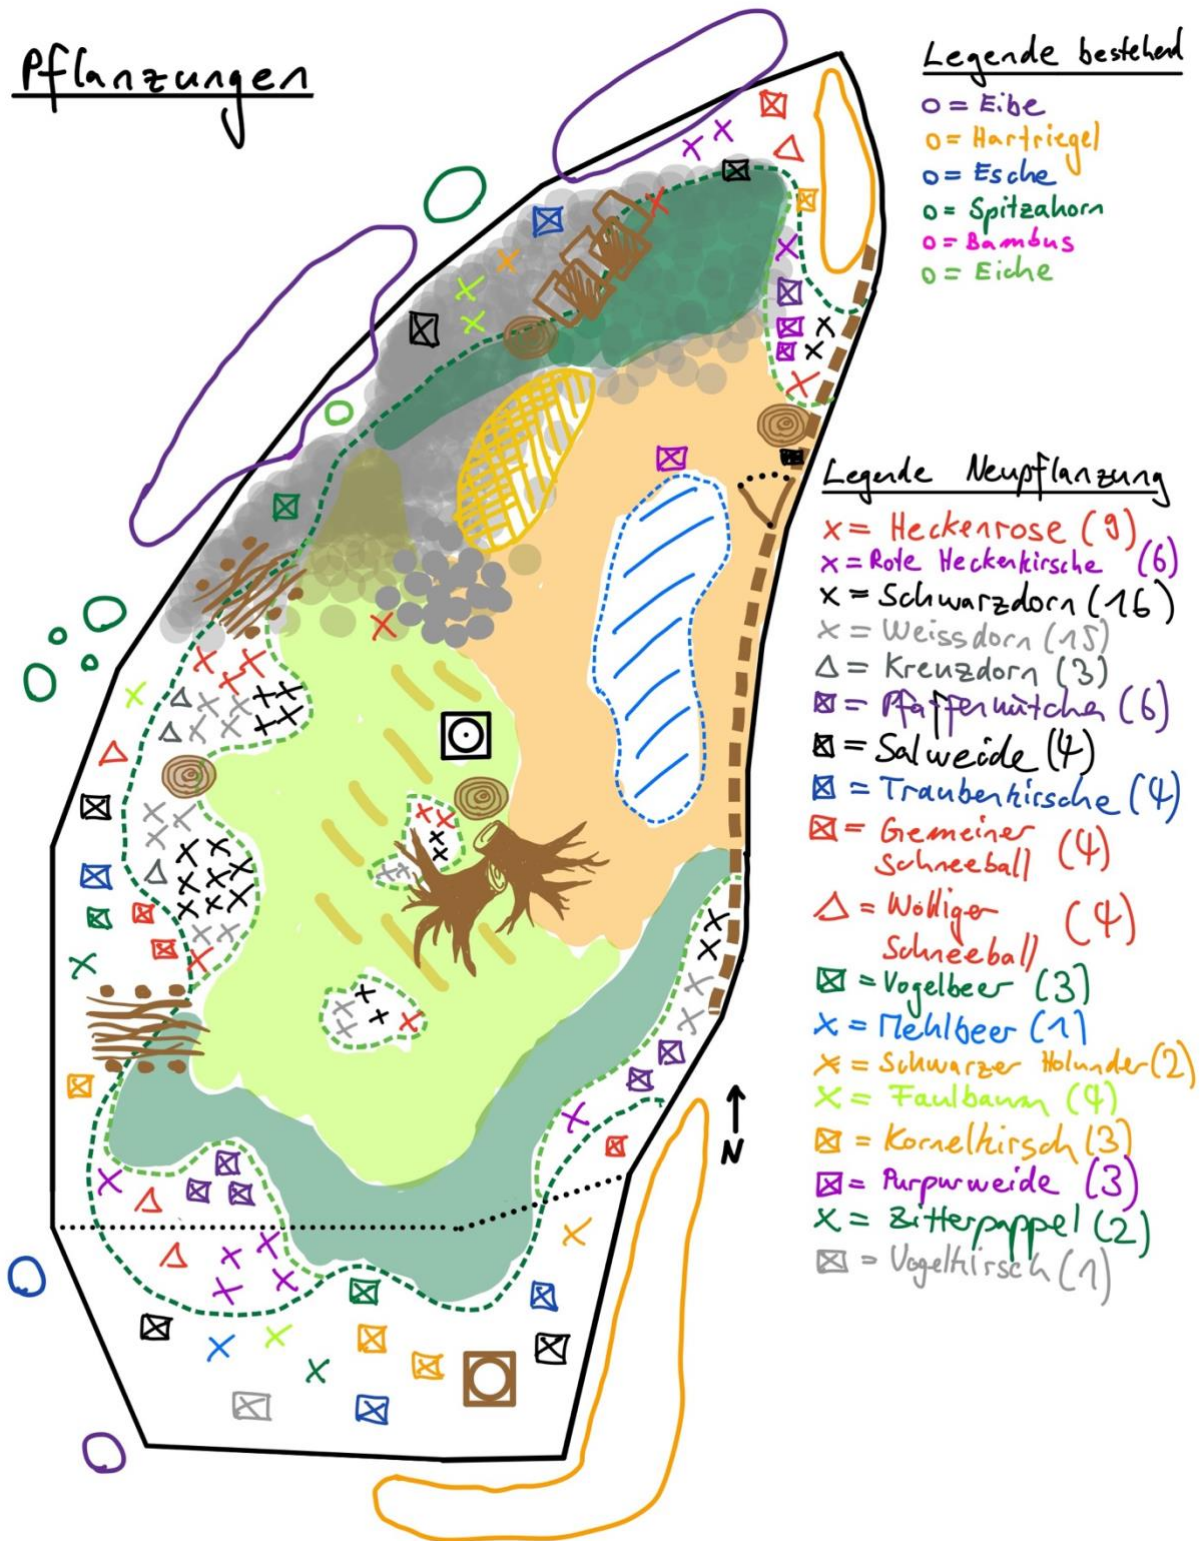 Pflanzungen
Legende bestehend
O = Eibe
O = Hartriegel
O = Esche
O = Spitzahorn
O = Bambus
O = Eiche
Legende Neupflanzung
x = Heckenrose (9)
x = Rote Heckenkirsche (6)
x = Schwarzdorn (16)
x = Weissdorn (15)
△ = Kreuzdorn (3)
⊠ = Pfaffenhütchen (6)
⊠ = Salweide (4)
⊠ = Traubenkirsche (4)
⊠ = Gemeiner
Schneeball (4)
△ = Wolliger
Schneeball (4)
⊠ = Vogelbeer (3)
x = Mehlbeer (1)
x = Schwarzer Holunder (2)
x = Faulbaum (4)
⊠ = Kornelkirsch (3)
⊠ = Purpurweide (3)
x = Zitterpappel (2)
⊠ = Vogelkirsch (1)
N